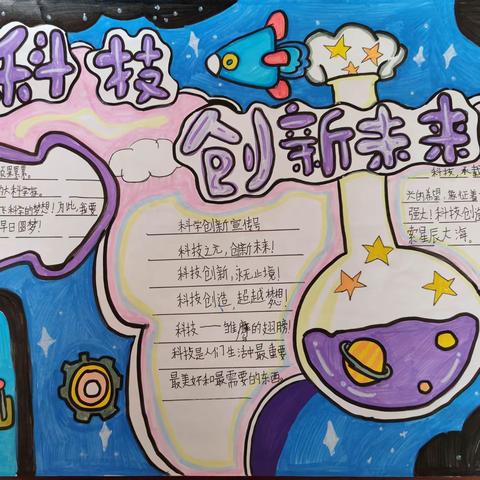 科技
创新未来
硕果累累。
大科学家。
飞科学的梦想！为此，我要
早日圆梦！
科学创新宣传号
科技之光，创新未来！
科技创新，永无止境！
科技创造，超越梦想！
科技——雏鹰的翅膀！
科技是人们生活中最重要
最美好和最需要的东西。
科技
兴的希望，象征着
强大！科技创造
索星辰大海。